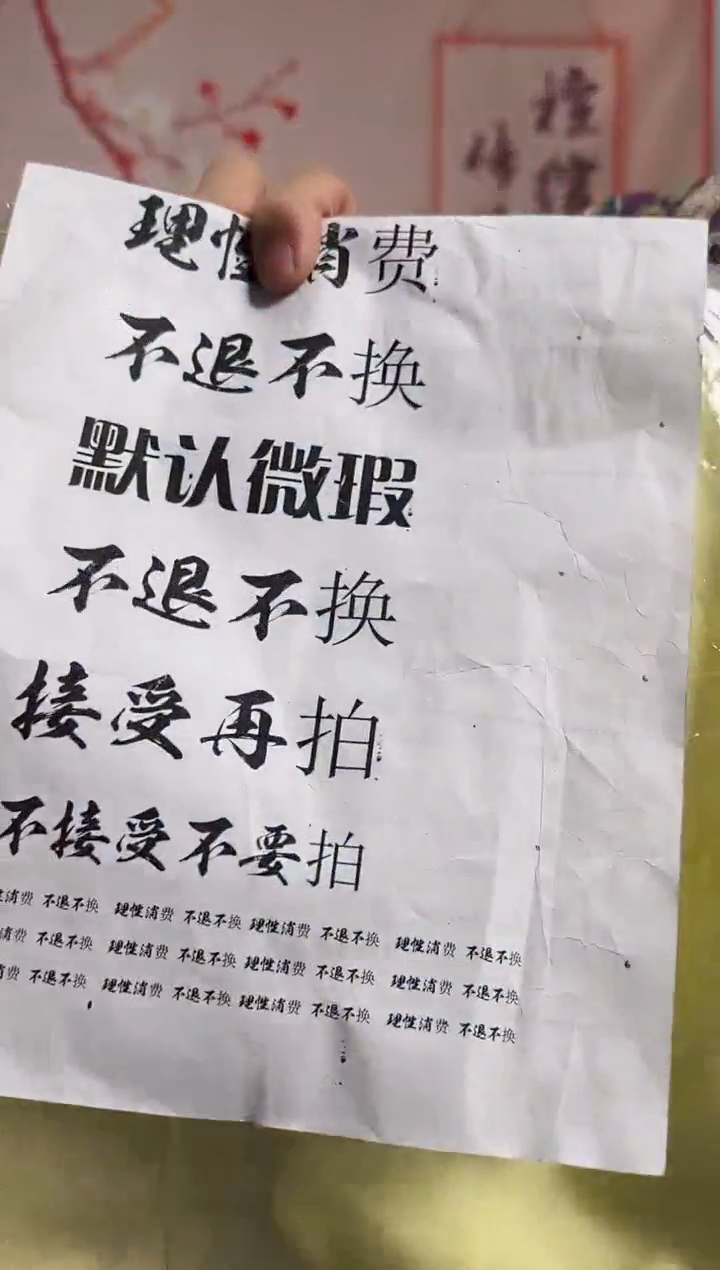 理性消费
不退不换
默认微瑕
不退不换
接受再拍
不接受不要拍
性消费 不退不换 理性消费 不退不换 理性消费 不退不换 理性消费 不退不换
消费 不退不换 理性消费 不退不换 理性消费 不退不换 理性消费 不退不换
消费 不退不换 理性消费 不退不换 理性消费 不退不换 理性消费 不退不换